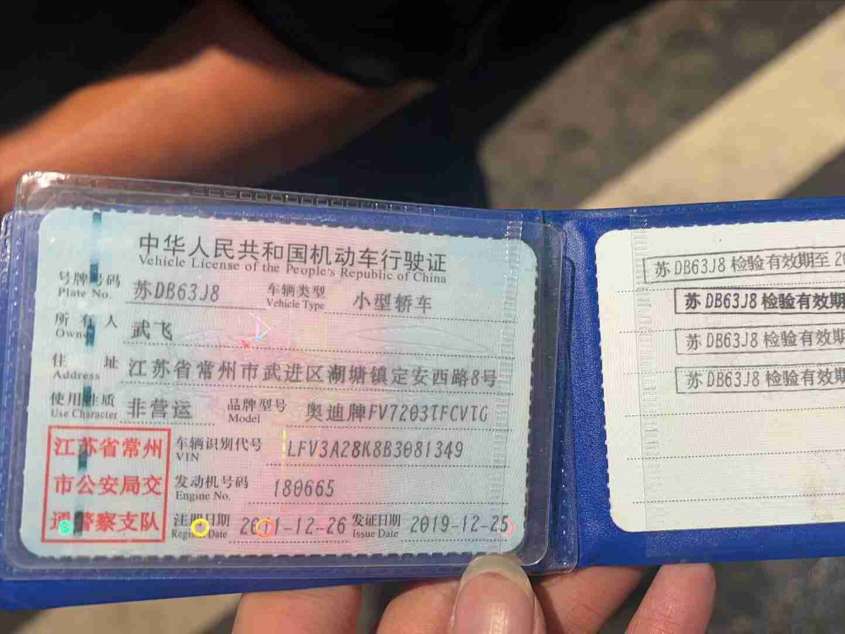 中华人民共和国机动车行驶证
Vehicle License of the People's Republic of China
号牌号码 苏DB63J8 车辆类型 小型轿车
Plate No. Vehicle Type
所有人 武飞
Owner
住址 江苏省常州市武进区湖塘镇定安西路8号
Address
使用性质 非营运 品牌型号 奥迪牌FV7203TFCVTG
Use Character Model
江苏省常州
市公安局交
通警察支队
车辆识别代号 LFV3A28K8B3081349
VIN
发动机号码 180665
Engine No.
注册日期 2011-12-26 发证日期 2019-12-25
Register Date Issue Date
苏DB63J8检验有效期至20
苏DB63J8检验有效期
苏DB63J8检验有效期
苏DB63J8检验有效期